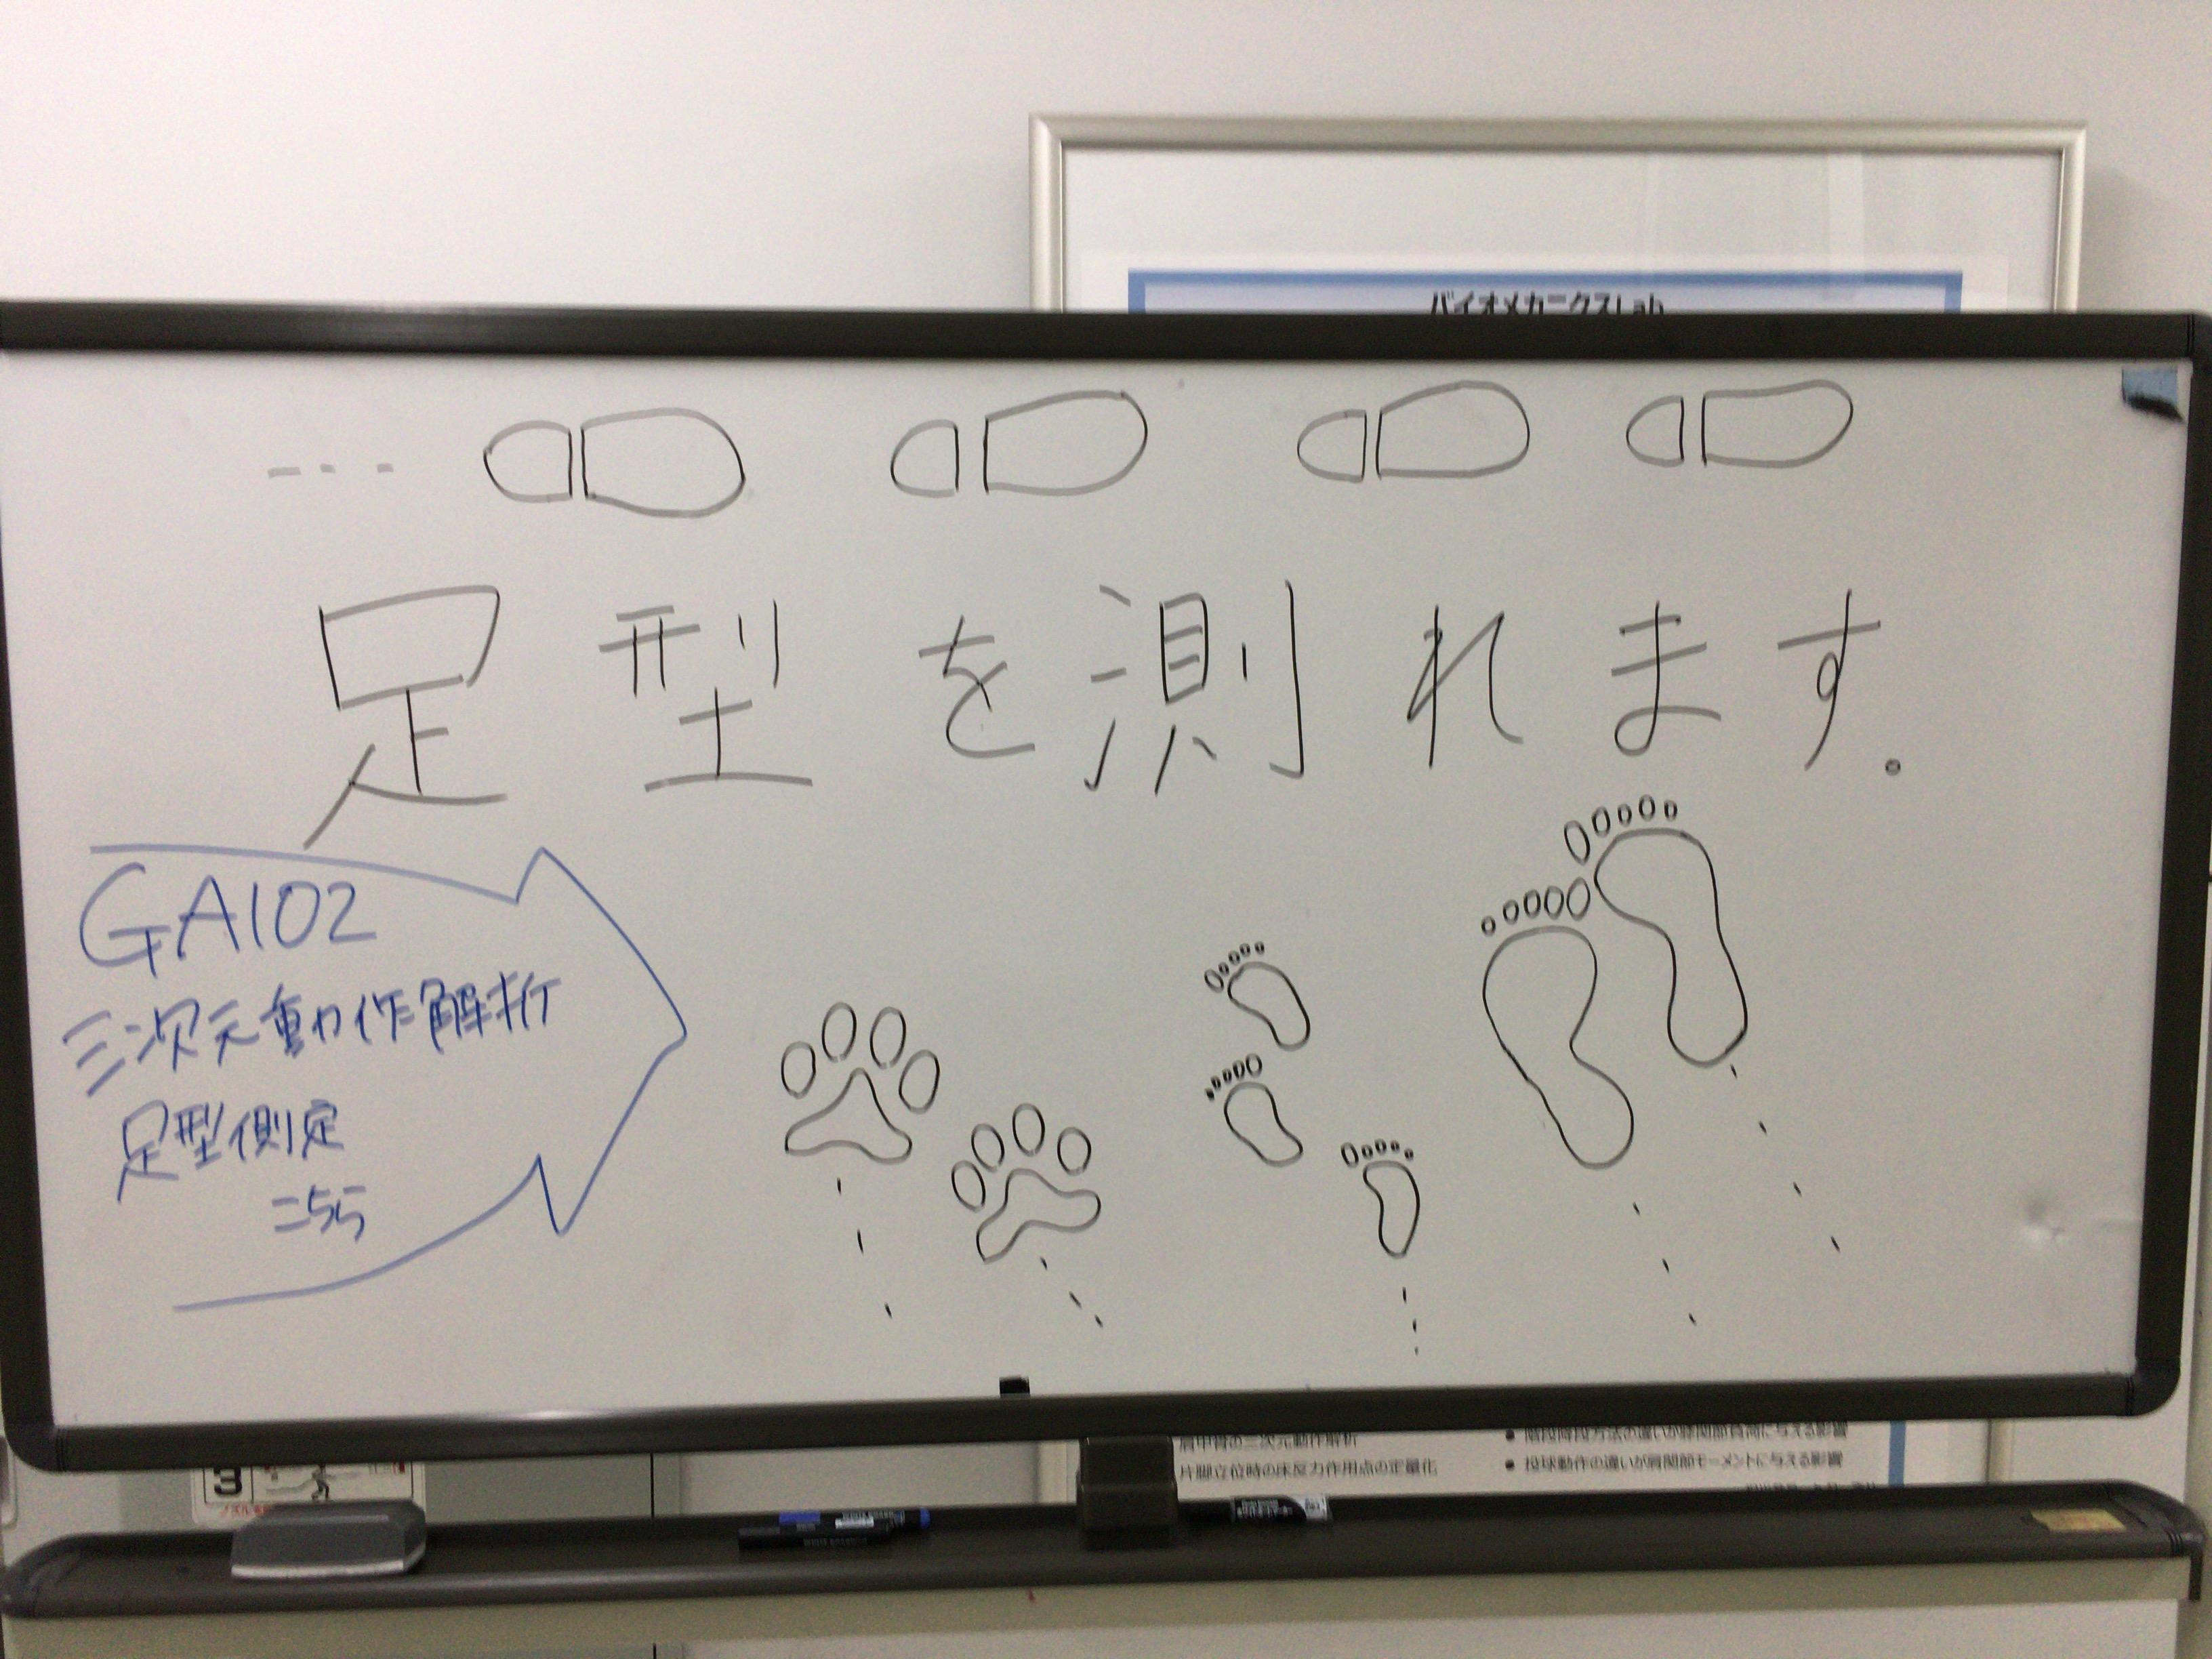 バイオメカニクスLab
足型を測れます。
GA102
三次元動作解析
足型側定
こちら
肩甲骨の三次元動作解析
片脚立位時の床反力作用点の定量化
● 階段降段方法の違いが膝関節負荷に与える影響
● 投球動作の違いが肩関節モーメントに与える影響
3